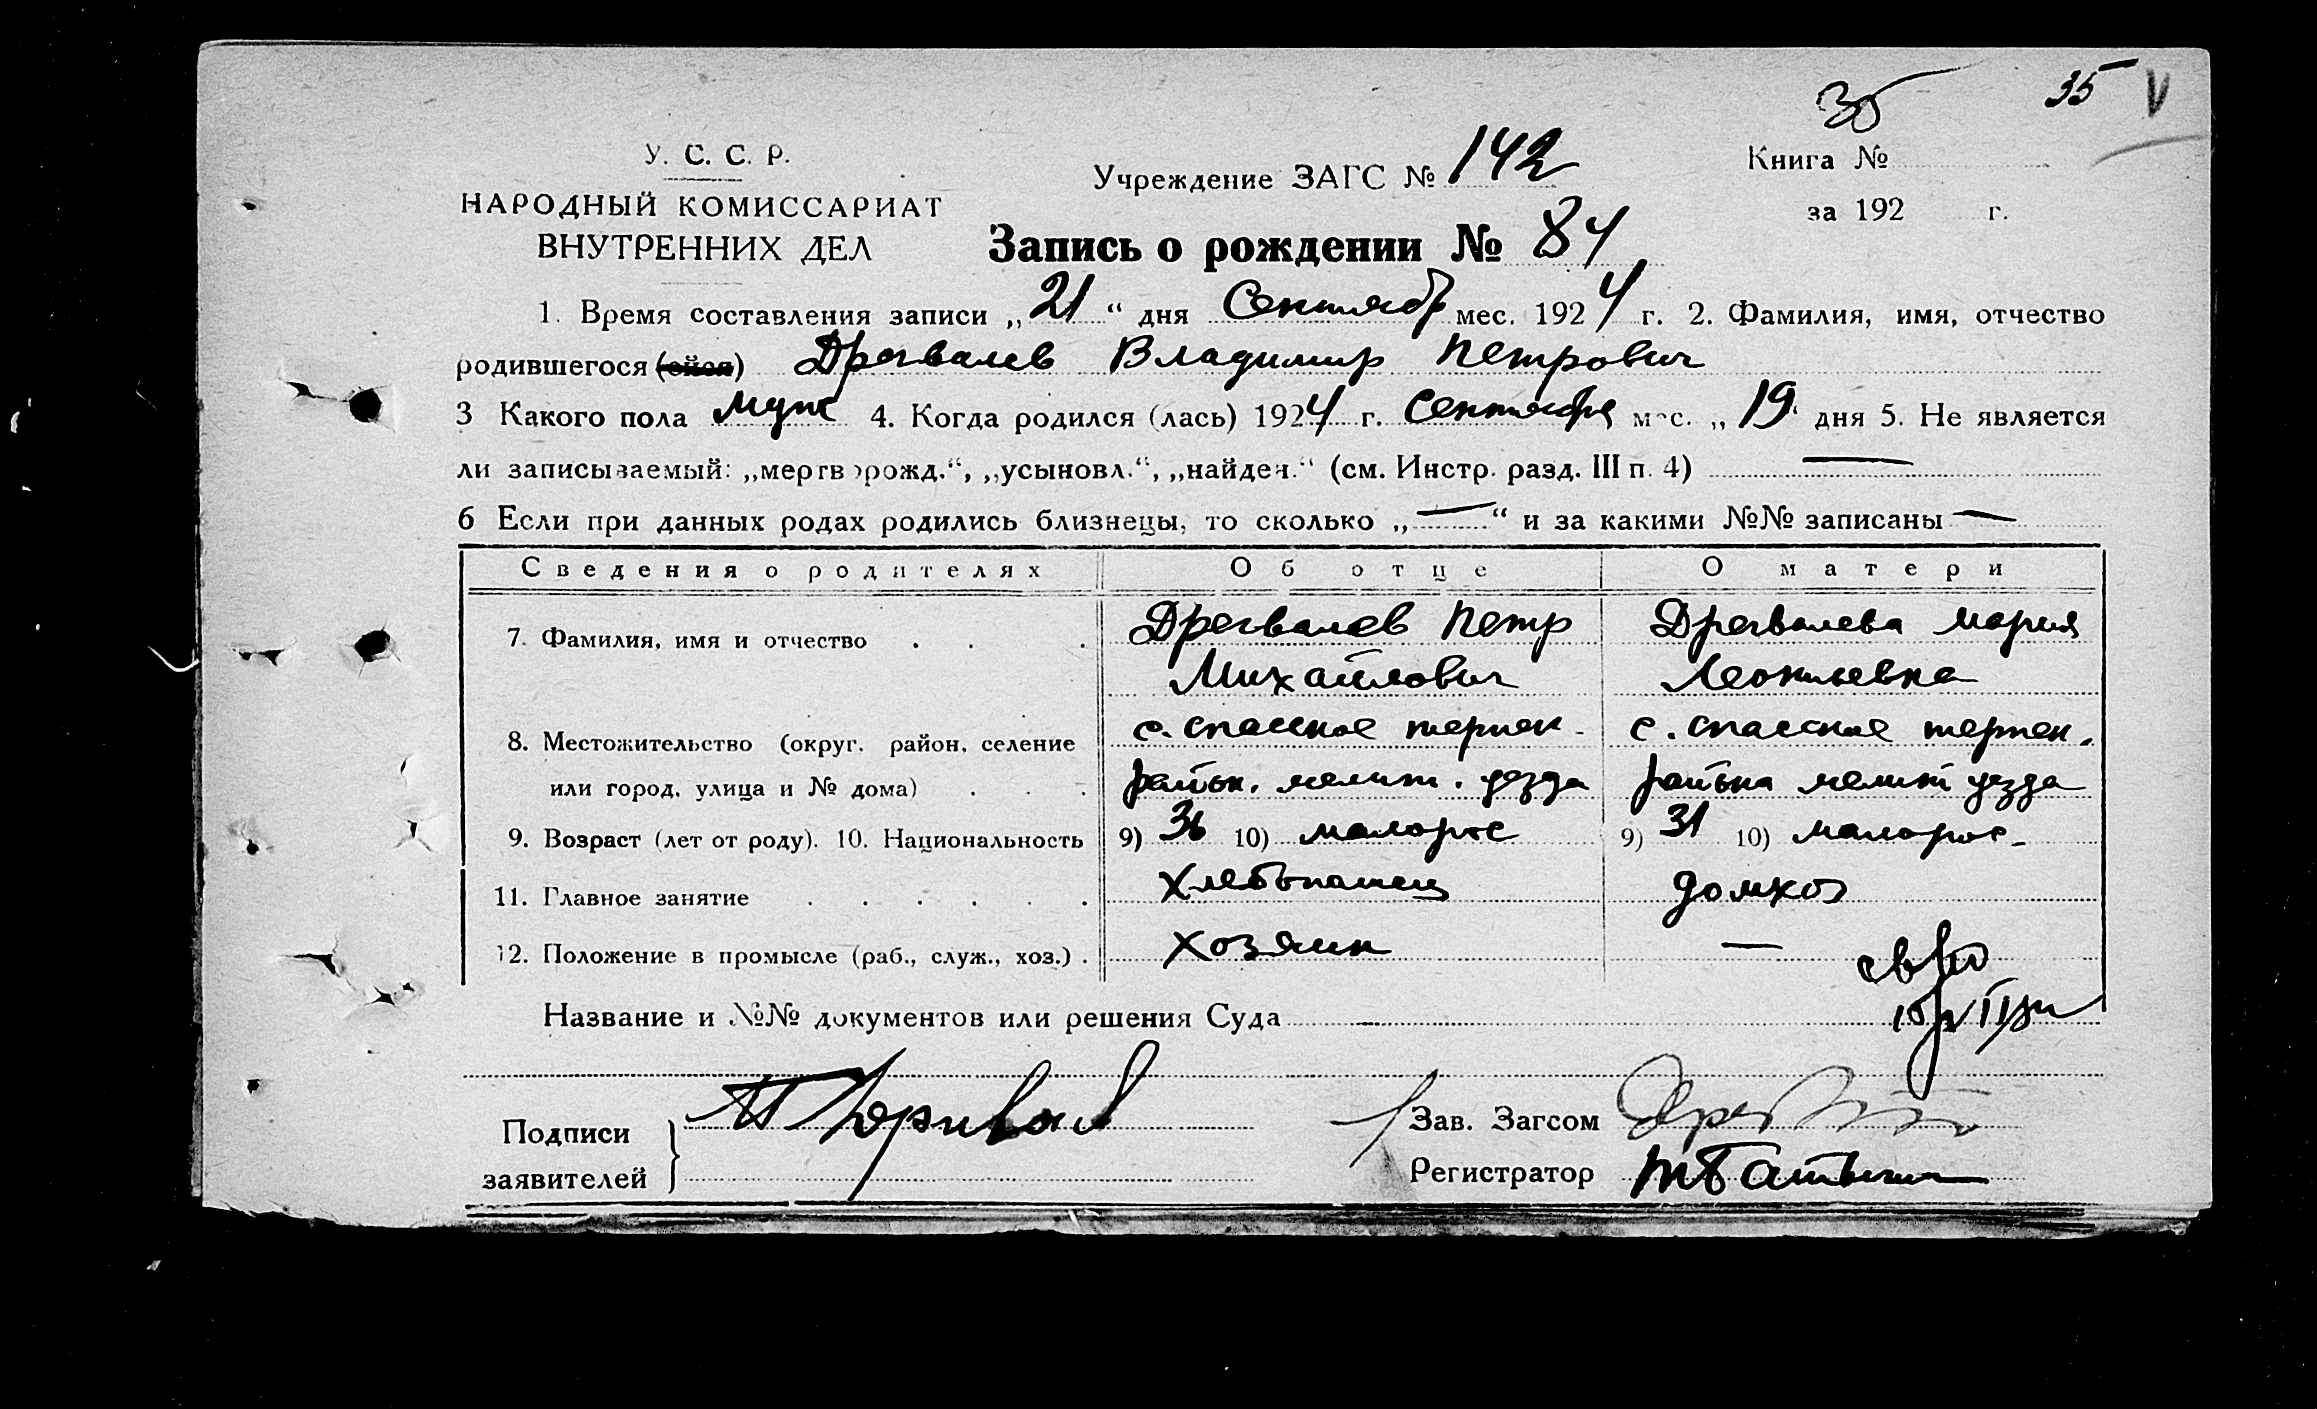 35 35 V
У. С. С. Р.
НАРОДНЫЙ КОМИССАРИАТ
ВНУТРЕННИХ ДЕЛ
Учреждение ЗАГС № 142
Книга №
за 192 г.
Запись о рождении № 84
1. Время составления записи „21“ дня Сентябр мес. 1924 г. 2. Фамилия, имя, отчество
родившегося (ейся) Дрегвалев Владимир Петрович
3 Какого пола муж 4. Когда родился (лась) 1924 г. Сентября мес. „19“ дня 5. Не является
ли записываемый: „мертворожд.“, „усыновл.“, „найден.“ (см. Инстр. разд. III п. 4) —
6 Если при данных родах родились близнецы, то сколько „—“ и за какими №№ записаны —
Сведения о родителях Об отце О матери
7. Фамилия, имя и отчество . . . Дрегвалев Петр Дрегвалева Мария
Михайлович
8. Местожительство (округ. район, селение с. спасское терпен. с. спасское терпен.
или город, улица и № дома) . . . район. мелит. уезда района мелит уезда
9. Возраст (лет от роду). 10. Национальность 9) 36 10) малорос 9) 31 10) малорос.
11. Главное занятие . . . . . . Хлебопашец домхоз
12. Положение в промысле (раб., служ., хоз.) . хозяин —
Название и №№ документов или решения Суда —
Подписи
заявителей
Зав. Загсом
Регистратор